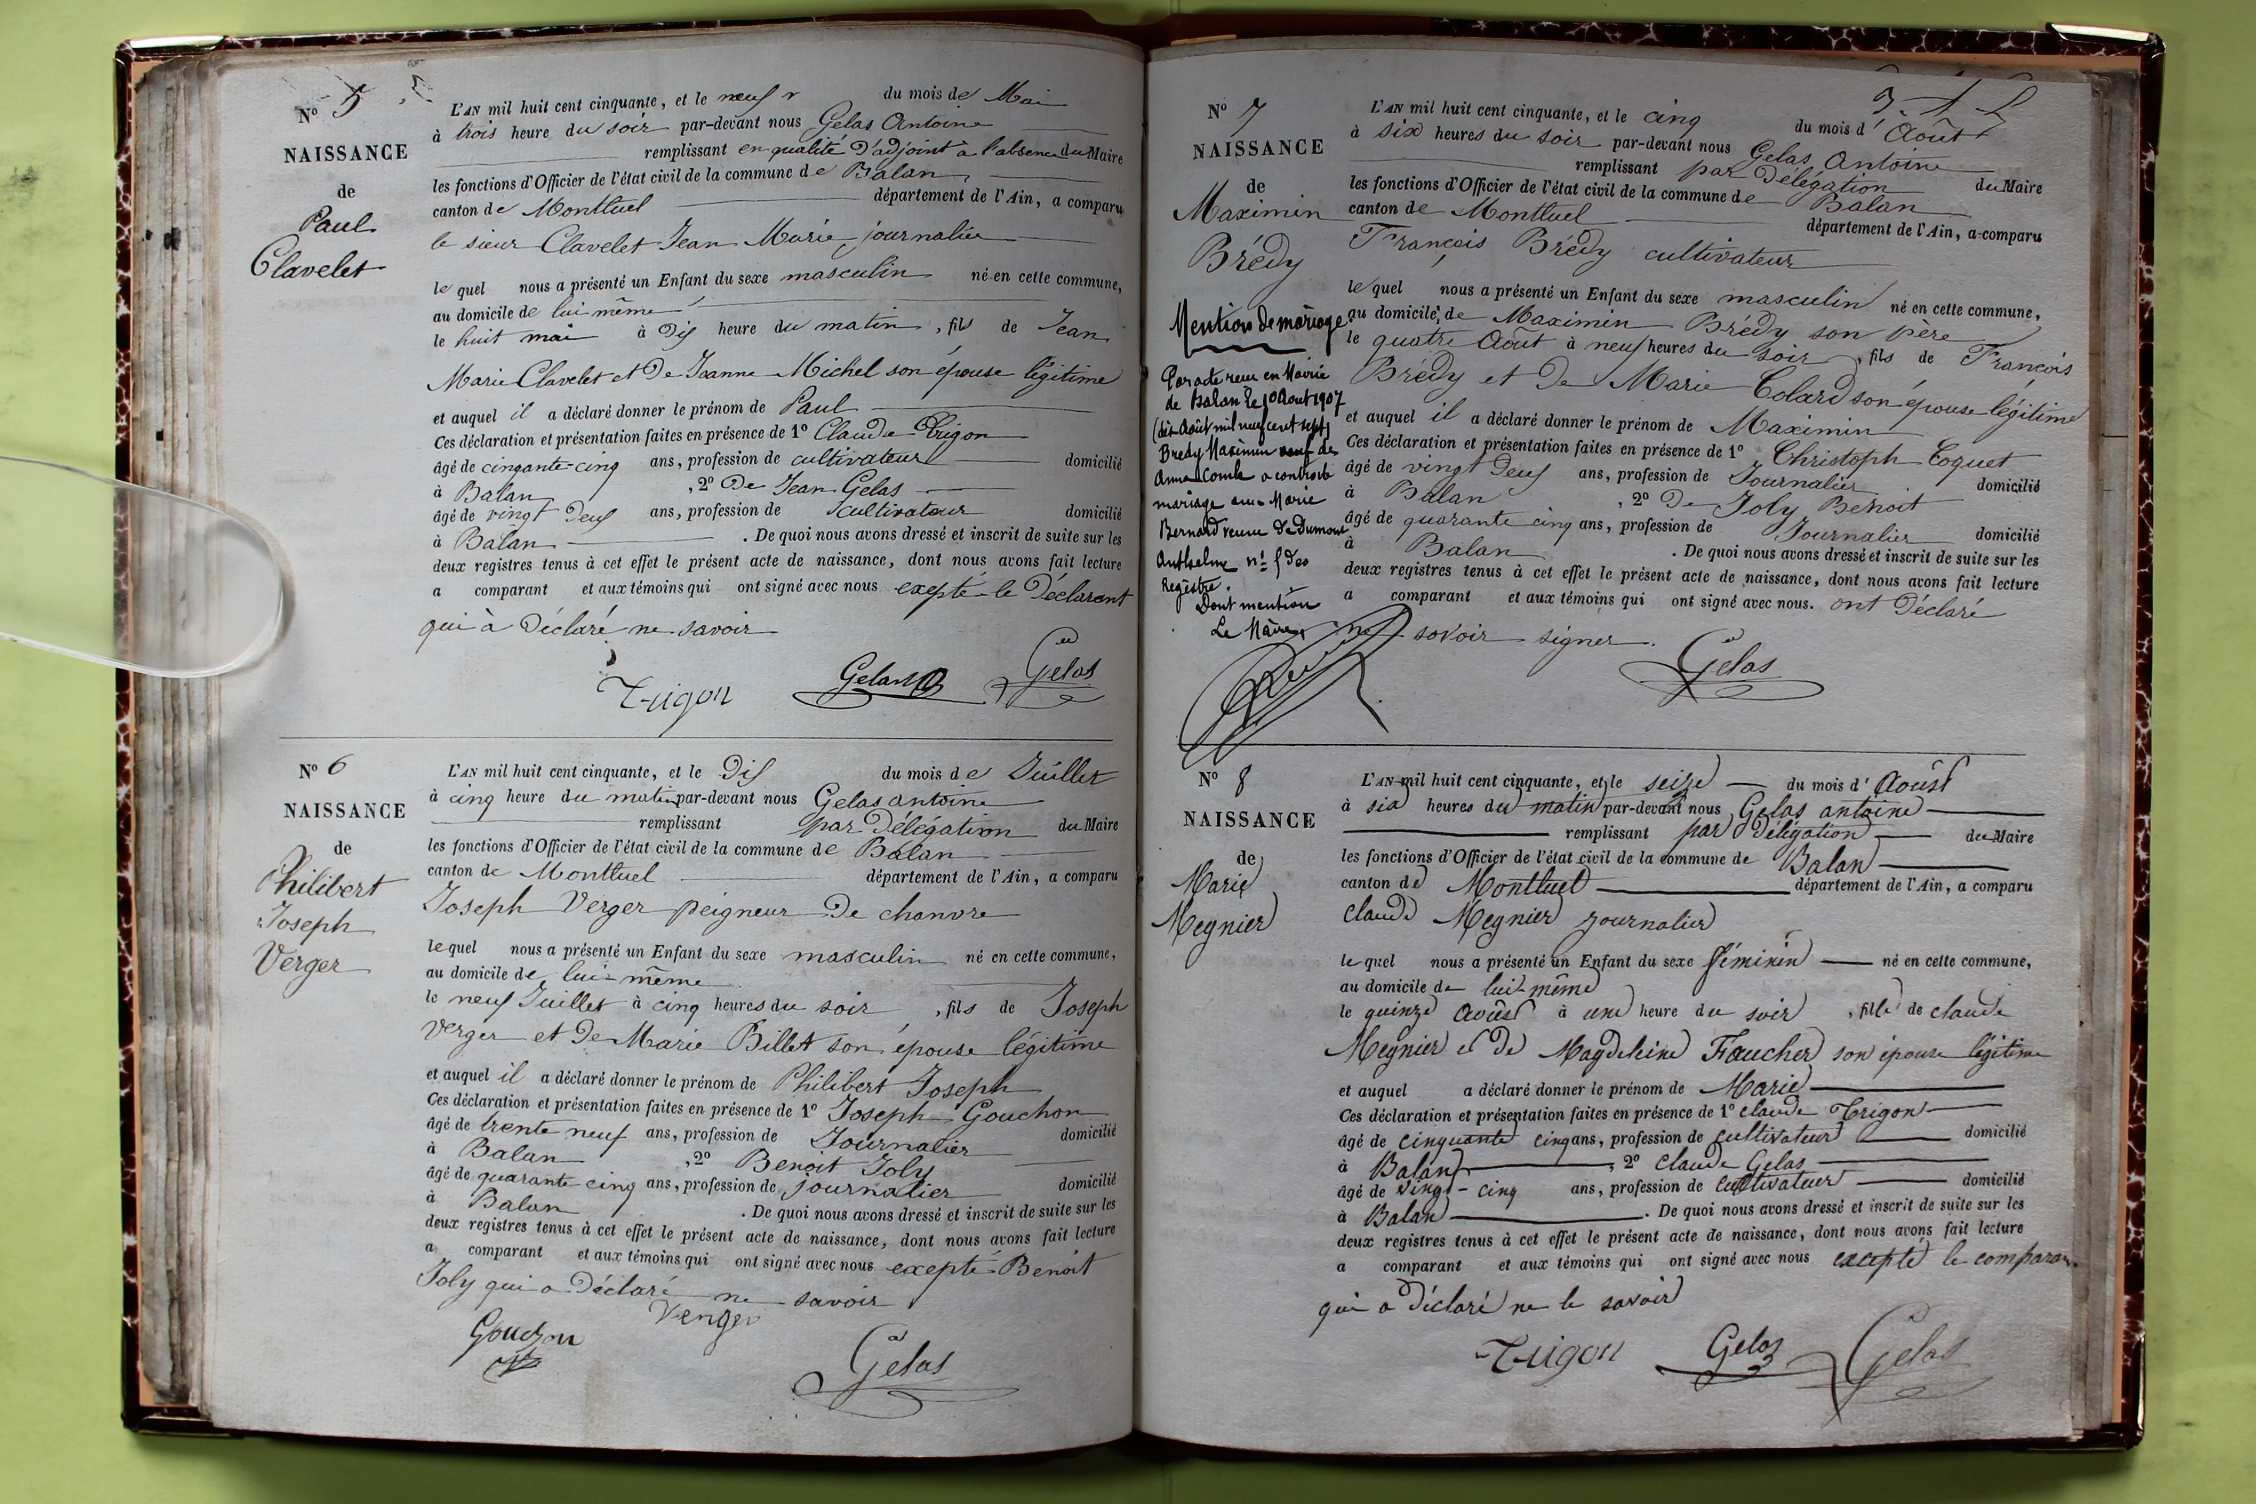 Nº 5
NAISSANCE
de
Paul
Clavelet
L'AN mil huit cent cinquante, et le neuf du mois de Mai
à trois heure du soir par-devant nous Gelas Antoine
remplissant en qualité d'adjoint à l'absence du Maire
les fonctions d'Officier de l'état civil de la commune de Balan
canton de Montluel département de l'Ain, a comparu
le sieur Clavelet Jean Marie journalier
le quel nous a présenté un Enfant du sexe masculin né en cette commune,
au domicile de lui même
le huit mai à Dix heure du matin, fils de Jean
Marie Clavelet et De Jeanne Michel son épouse légitime
et auquel il a déclaré donner le prénom de Paul
Ces déclaration et présentation faites en présence de 1º Claude Trigon
âgé de cinqante-cinq ans, profession de cultivateur domicilié
à Balan, 2º De Jean Gelas
âgé de vingt Deux ans, profession de cultivateur domicilié
à Balan . De quoi nous avons dressé et inscrit de suite sur les
deux registres tenus à cet effet le présent acte de naissance, dont nous avons fait lecture
a comparant et aux témoins qui ont signé avec nous exepté le Déclarant
qui à Déclaré ne savoir
Trigon Gelas Gelas
Nº 6
NAISSANCE
de
Philibert
Joseph
Verger
L'AN mil huit cent cinquante, et le Dix du mois de Juillet
à cinq heure du matin par-devant nous Gelas antoine
remplissant par Délégation du Maire
les fonctions d'Officier de l'état civil de la commune de Balan
canton de Montluel département de l'Ain, a comparu
Joseph Verger peigneur De chanvre
le quel nous a présenté un Enfant du sexe masculin né en cette commune,
au domicile de lui même
le neuf Juillet à cinq heures du soir, fils de Joseph
Verger et De Marie Billet son épouse légitime
et auquel il a déclaré donner le prénom de Philibert Joseph
Ces déclaration et présentation faites en présence de 1º Joseph Gouchon
âgé de trente neuf ans, profession de Journalier domicilié
à Balan, 2º Benoit Joly
âgé de quarante cinq ans, profession de journalier domicilié
à Balan . De quoi nous avons dressé et inscrit de suite sur les
deux registres tenus à cet effet le présent acte de naissance, dont nous avons fait lecture
a comparant et aux témoins qui ont signé avec nous exepté Benoit
Joly qui a Déclaré ne savoir
Gouchon Verger Gelas
Nº 7
NAISSANCE
de
Maximin
Brédy
Mention de mariage
Par acte reçu en Mairie
de Balan le 10 Aout 1907
(dix Août mil neuf cent sept)
Bredy Maximin veuf de
Anna Comte a contracté
mariage avec Marie
Bernard veuve de Dumont
Anthelme nº 5 des
Registre.
Dont mention
Le Maire
L'AN mil huit cent cinquante, et le cinq du mois d'Août
à six heures du soir par-devant nous Gelas Antoine
remplissant par Délégation du Maire
les fonctions d'Officier de l'état civil de la commune de Balan
canton de Montluel département de l'Ain, a comparu
François Brédy cultivateur
le quel nous a présenté un Enfant du sexe masculin né en cette commune,
au domicile de Maximin Brédy son père
le quatre Août à neuf heures du soir, fils de François
Brédy et De Marie Colard son épouse légitime
et auquel il a déclaré donner le prénom de Maximin
Ces déclaration et présentation faites en présence de 1º Christoph Coquet
âgé de vingt Deux ans, profession de Journalier domicilié
à Balan, 2º De Joly Benoit
âgé de quarante cinq ans, profession de Journalier domicilié
à Balan . De quoi nous avons dressé et inscrit de suite sur les
deux registres tenus à cet effet le présent acte de naissance, dont nous avons fait lecture
a comparant et aux témoins qui ont signé avec nous. ont Déclaré
ne savoir signer.
Gelas
Nº 8
NAISSANCE
de
Marie
Megnier
L'AN mil huit cent cinquante, et le seize du mois d'Août
à six heures du matin par-devant nous Gelas antoine
remplissant par Délégation du Maire
les fonctions d'Officier de l'état civil de la commune de Balan
canton de Montluel département de l'Ain, a comparu
claude Megnier journalier
le quel nous a présenté un Enfant du sexe féminin né en cette commune,
au domicile de lui-même
le quinze Août à une heure du soir, fille de claude
Megnier et de Magdeleine Faucher son épouse légitime
et auquel a déclaré donner le prénom de Marie
Ces déclaration et présentation faites en présence de 1º claude Trigon
âgé de cinquante cinq ans, profession de cultivateur domicilié
à Balan, 2º claude Gelas
âgé de vingt-cinq ans, profession de cultivateur domicilié
à Balan . De quoi nous avons dressé et inscrit de suite sur les
deux registres tenus à cet effet le présent acte de naissance, dont nous avons fait lecture
a comparant et aux témoins qui ont signé avec nous excepté le comparan.
qui a Déclaré ne le savoir
Trigon Gelas Gelas